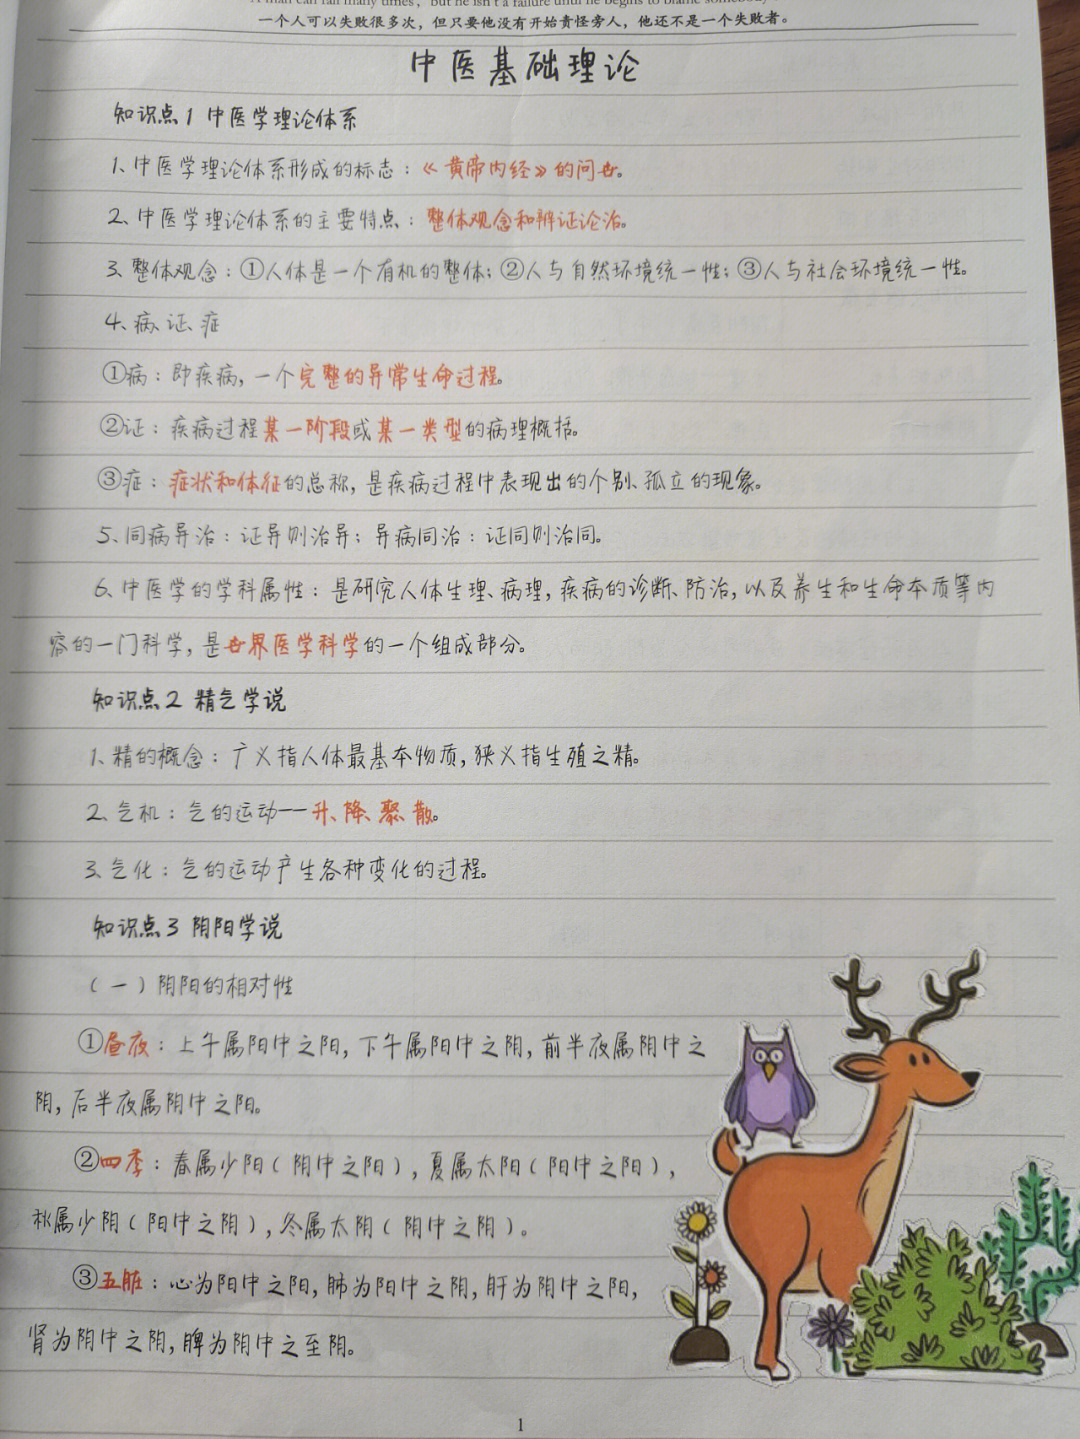 A man can fail many times, but he isn't a failure until he begins to blame somebody
一个人可以失败很多次，但只要他没有开始责怪旁人，他还不是一个失败者。
中医基础理论
知识点1 中医学理论体系
1、中医学理论体系形成的标志：《黄帝内经》的问世。
2、中医学理论体系的主要特点：整体观念和辨证论治。
3、整体观念：①人体是一个有机的整体；②人与自然环境统一性；③人与社会环境统一性。
4、病、证、症
①病：即疾病，一个完整的异常生命过程。
②证：疾病过程某一阶段或某一类型的病理概括。
③症：症状和体征的总称，是疾病过程中表现出的个别、孤立的现象。
5、同病异治：证异则治异；异病同治：证同则治同。
6、中医学的学科属性：是研究人体生理、病理，疾病的诊断、防治，以及养生和生命本质等内
容的一门科学，是世界医学科学的一个组成部分。
知识点2 精气学说
1、精的概念：广义指人体最基本物质，狭义指生殖之精。
2、气机：气的运动——升、降、聚、散。
3、气化：气的运动产生各种变化的过程。
知识点3 阴阳学说
（一）阴阳的相对性
①昼夜：上午属阳中之阳，下午属阳中之阴，前半夜属阴中之
阴，后半夜属阴中之阳。
②四季：春属少阳（阴中之阳），夏属太阳（阳中之阳），
秋属少阴（阳中之阴），冬属太阴（阴中之阴）。
③五脏：心为阳中之阳，肺为阳中之阴，肝为阴中之阳，
肾为阴中之阴，脾为阴中之至阴。
1